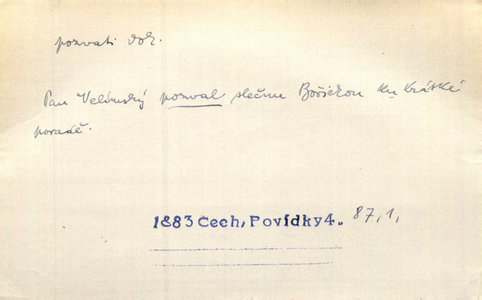 pozvati dok.
Pan Velínský pozval slečnu Bořickou ku krátké
poradě.
1883 Čech, Povídky 4„ 87, 1,